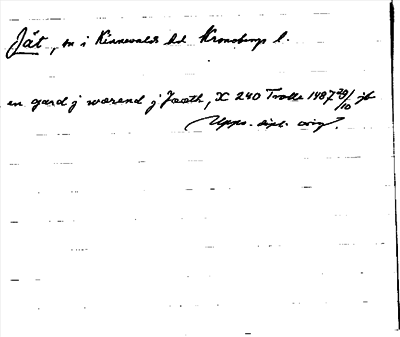 Jät, sn i Kinnevalds hd Kronobergs l.
en gard j wærend j Jææth, X 240 Trolle 1487 29/10 jb
Upps. dipl. orig.